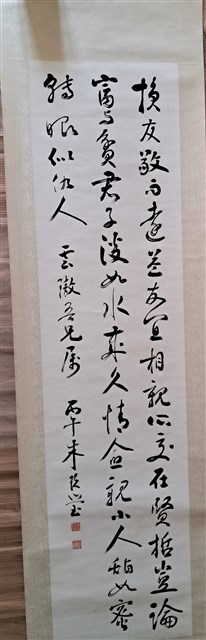 損友敬而遠益友宜相親所交在賢哲豈論
富与貧君子淡如水歲久情愈親小人甜如蜜
轉眼似仇人 雲吾兄属 丙午朱书